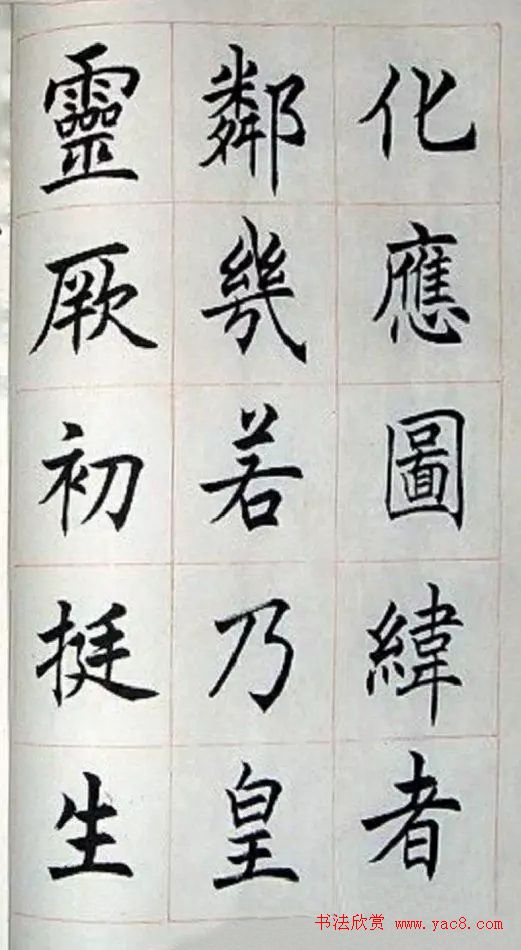 化應圖緯者
鄰幾若乃皇
靈厥初挺生
书法欣赏 www.yac8.com